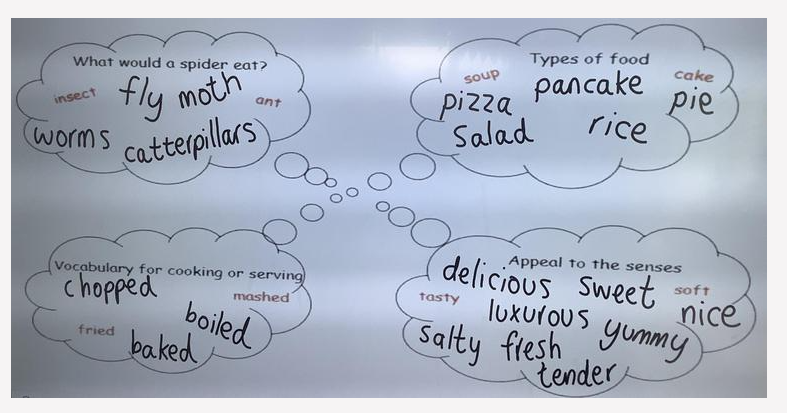 What would a spider eat?
insect fly moth ant
worms catterpillars
Types of food
soup pancake cake
pizza pie
Salad rice
Vocabulary for cooking or serving
chopped mashed
fried boiled
baked
Appeal to the senses
delicious sweet soft
tasty luxurous nice
salty fresh yummy
tender